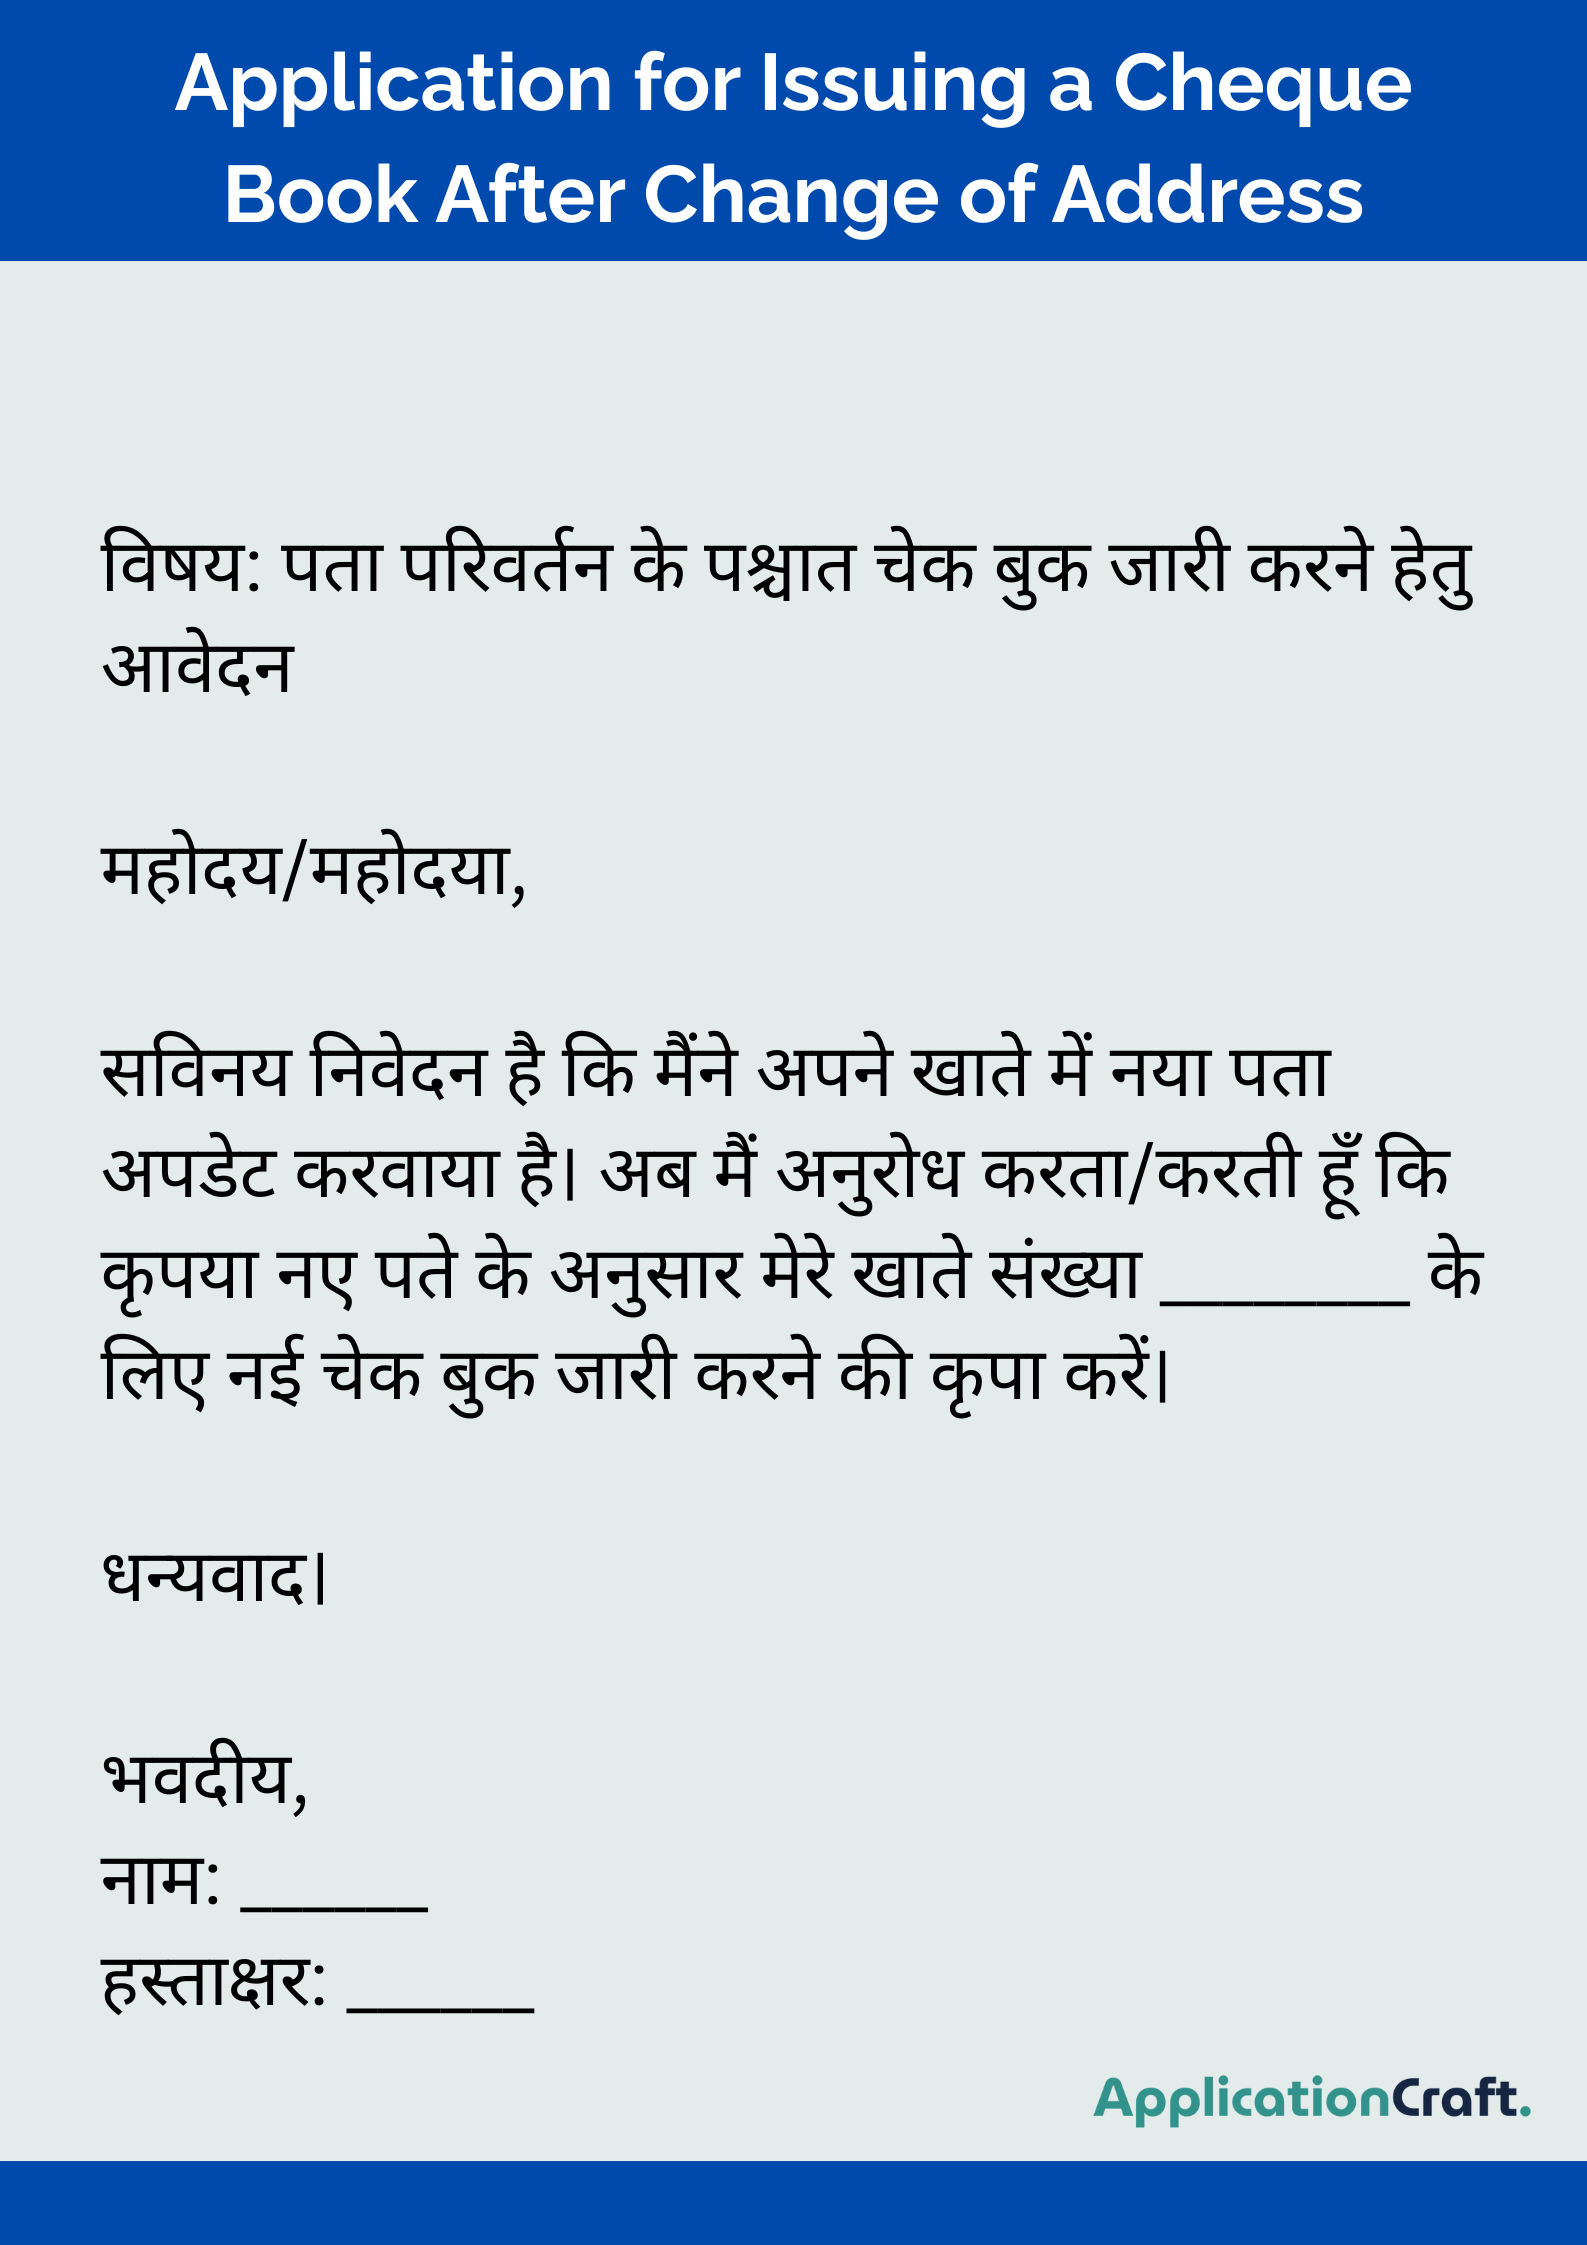 Application for Issuing a Cheque
Book After Change of Address
विषय: पता परिवर्तन के पश्चात चेक बुक जारी करने हेतु
आवेदन
महोदय/महोदया,
सविनय निवेदन है कि मैंने अपने खाते में नया पता
अपडेट करवाया है। अब मैं अनुरोध करता/करती हूँ कि
कृपया नए पते के अनुसार मेरे खाते संख्या ________ के
लिए नई चेक बुक जारी करने की कृपा करें।
धन्यवाद।
भवदीय,
नाम: ______
हस्ताक्षर: ______
ApplicationCraft.